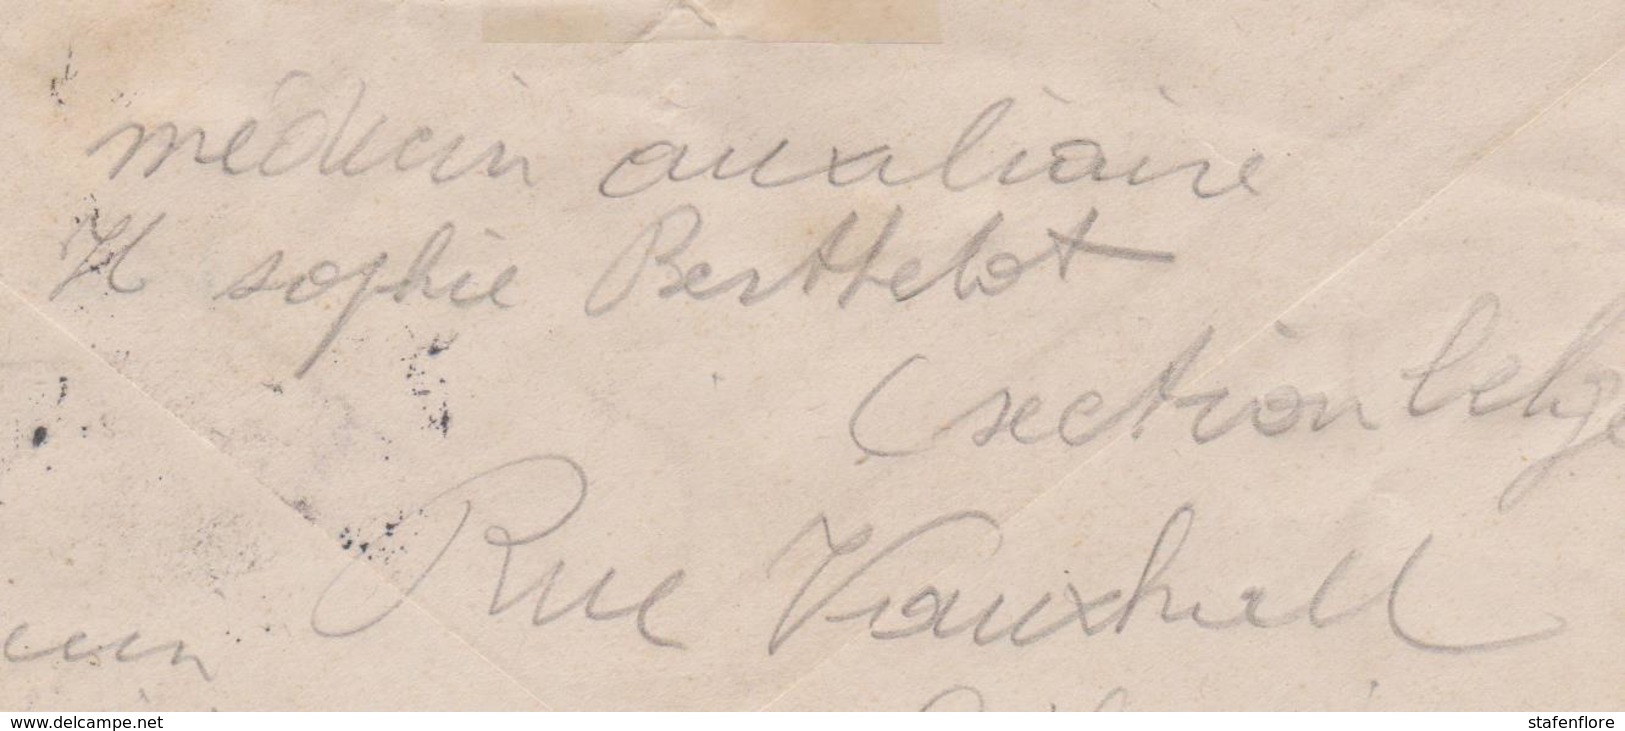 médecin auxiliaire
H sophie Berthelot
(section belge
Rue Vauxhall
www.delcampe.net
stafenflore